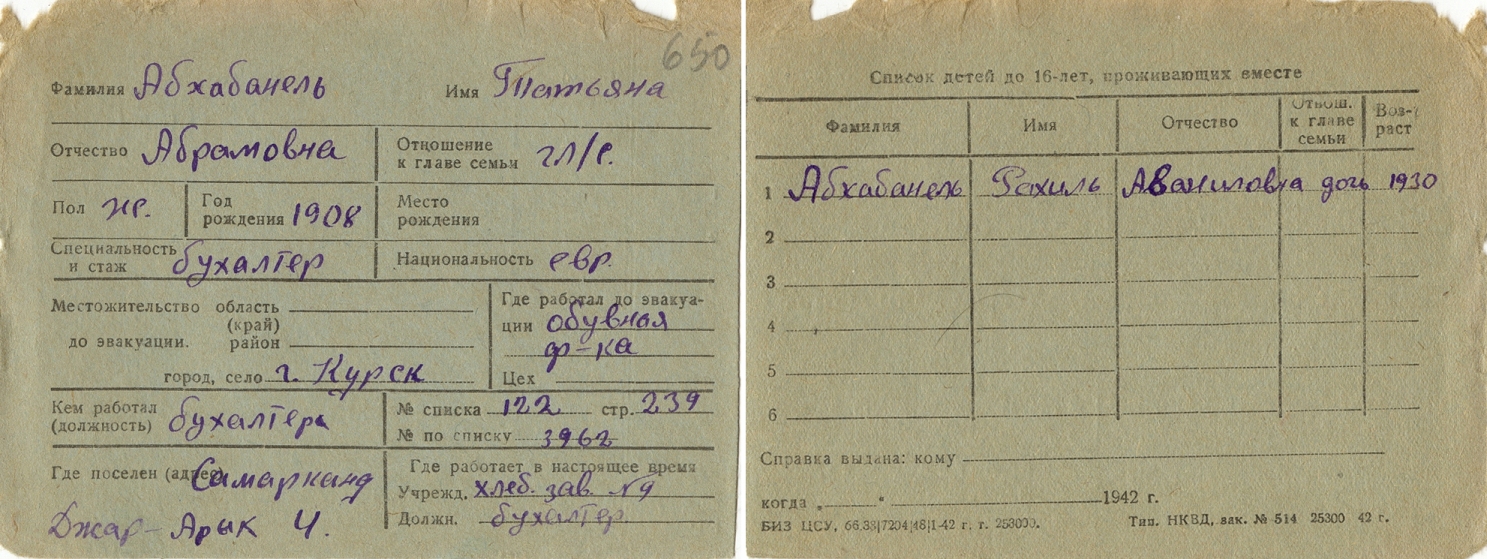 650
Фамилия Абхабанель Имя Татьяна
Отчество Абрамовна Отношение к главе семьи гл/с.
Пол же. Год рождения 1908 Место рождения
Специальность и стаж бухалтер Национальность евр.
Местожительство область
(край)
до эвакуации. район
город, село г. Курск
Где работал до эвакуа-
ции обувная
ф-ка
Цех
Кем работал (должность) бухалтера
№ списка 122 стр. 239
№ по списку 3962
Где поселен (адрес) Самарканд
Джар-Арык 4.
Где работает в настоящее время
Учрежд. хлеб. зав. №9
Должн. бухалтер.
Список детей до 16-лет, проживающих вместе
Фамилия Имя Отчество Отнош. к главе семьи Воз-раст
1 Абхабанель Рахиль Аваниловна дочь 1930
2
3
4
5
6
Справка выдана: кому
когда „ “ 1942 г.
БИЗ ЦСУ, 66.33|7204|48|1-42 г. г. 253000. Тип. НКВД, зак. № 514 25300 42 г.